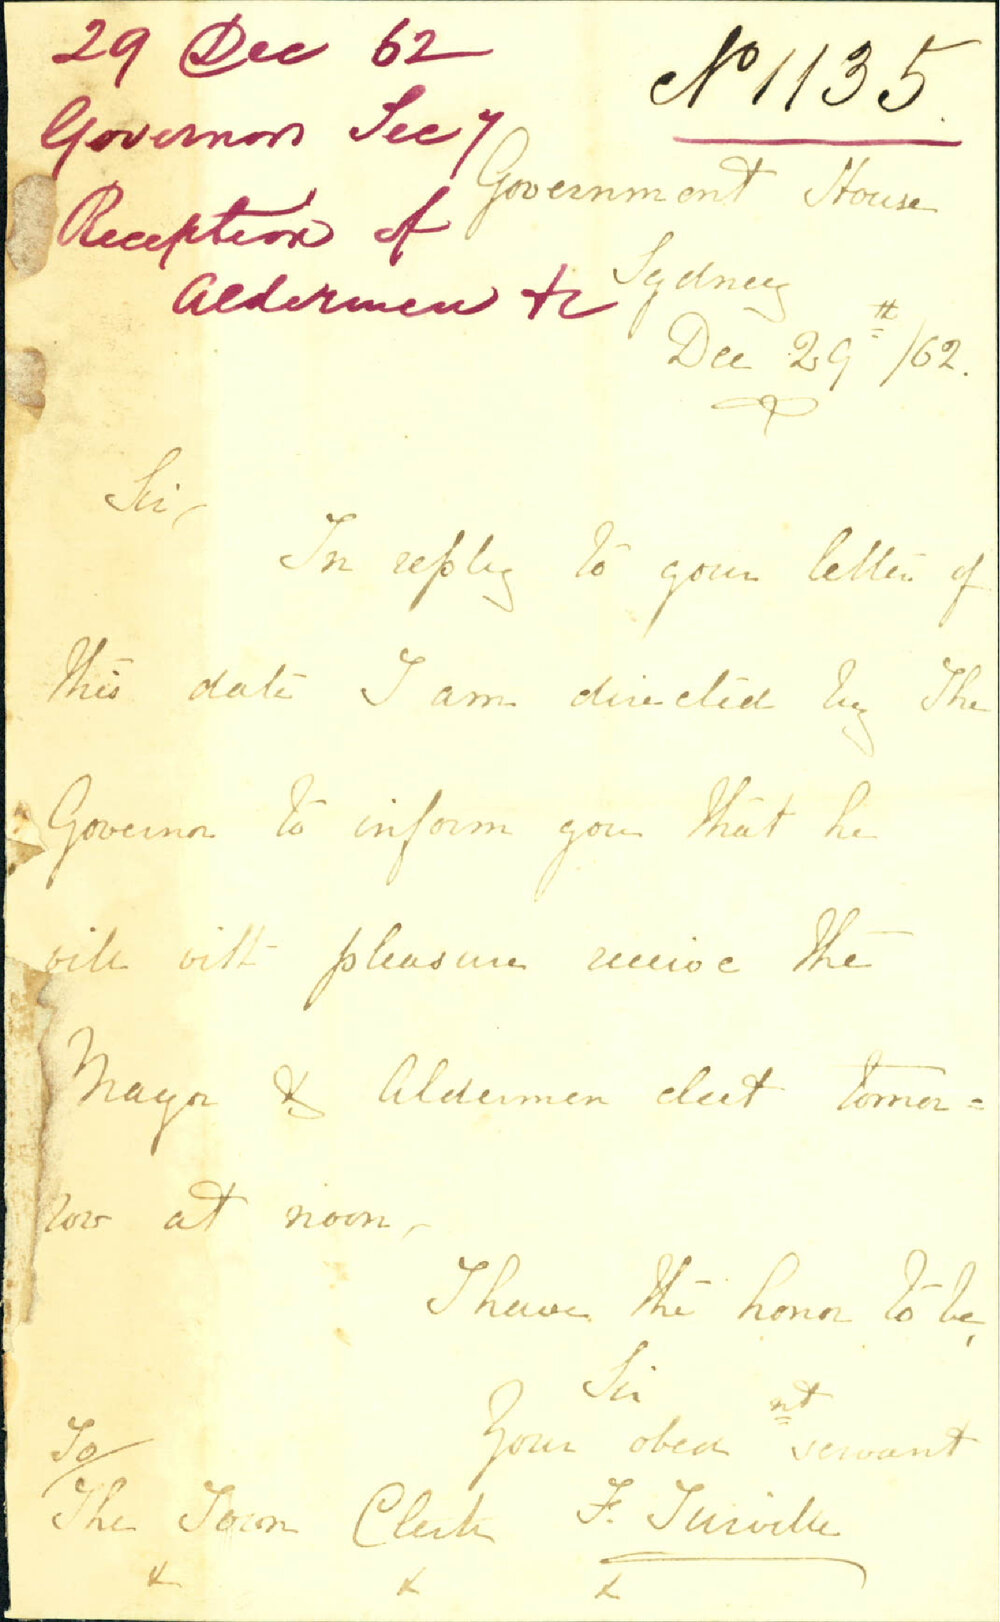 29 Dec 62
Governors Secy
Reception of
Aldermen &c
No 1135.
Government House
Sydney
Dec 29th /62.
Sir,
In reply to your letter of
this date I am directed by The
Governor to inform you that he
will with pleasure receive the
Mayor & Aldermen elect tomor=
row at noon,
I have the honor to be,
Sir
Your obednt servant
F. Turville
To/
The Town Clerk
&  &  &